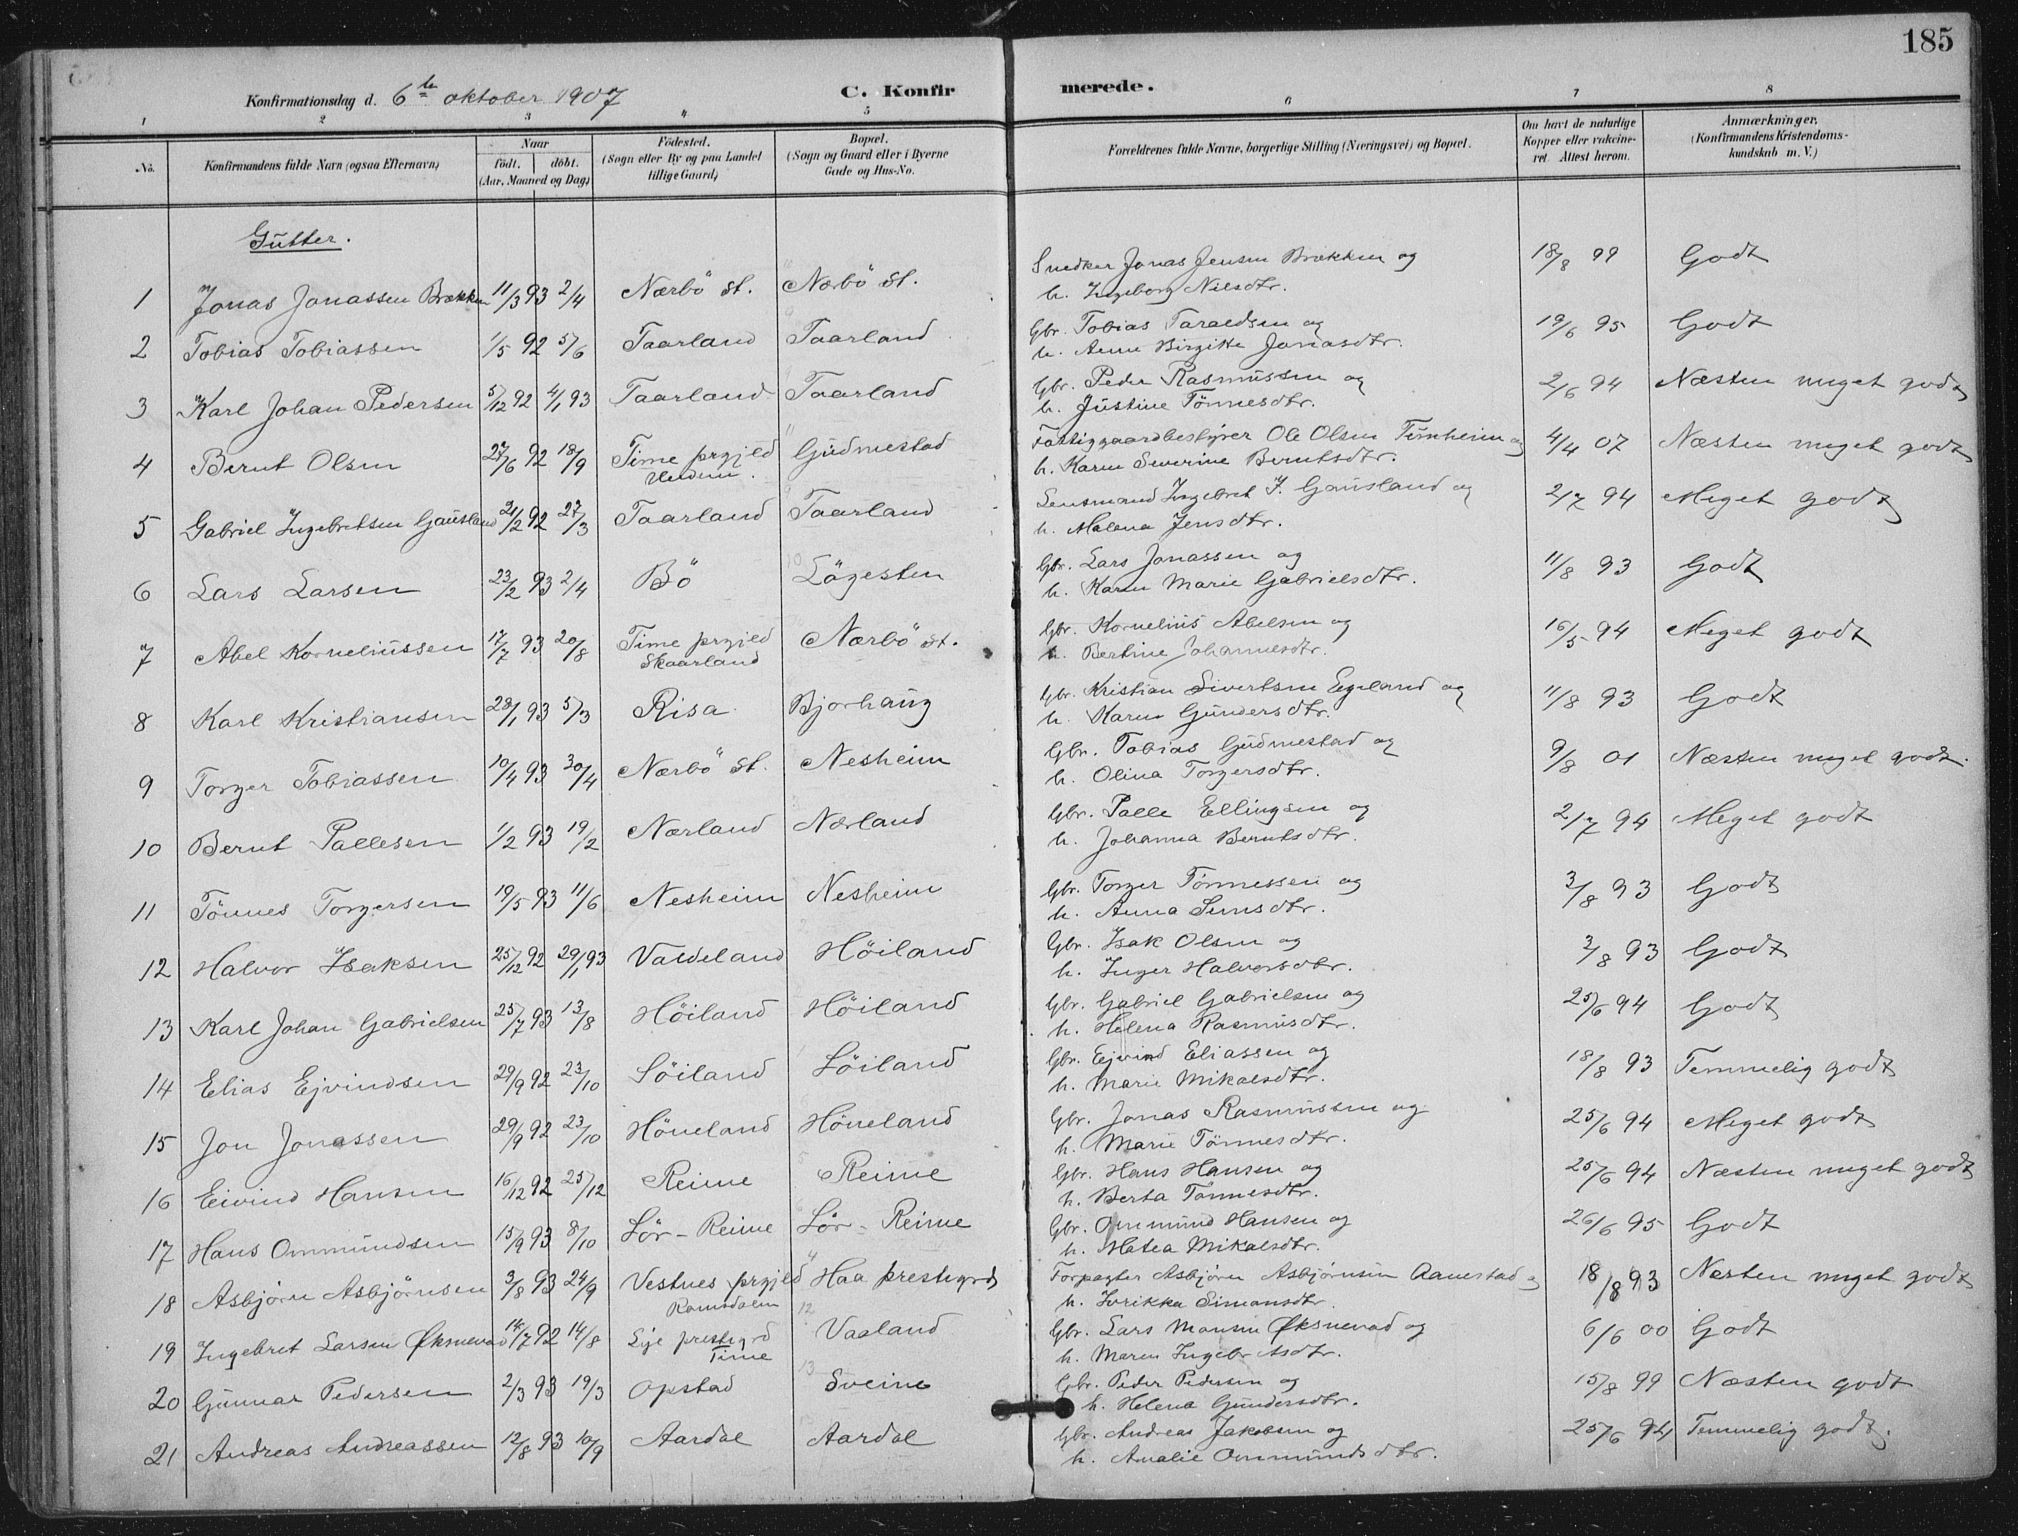 185
Konfirmationsdag d. 6te oktober 1907 C. Konfirmerede.
1 2 3 4 5 6 7 8
No. Konfirmandens fulde Navn (ogsaa Efternavn) Naar født. døbt. (Aar, Maaned og Dag) Fødested. (Sogn eller By og paa Landet tillige Gaard) Bopæl. (Sogn og Gaard eller i Byerne Gade og Hus-No. Forældrenes fulde Navne, borgerlige Stilling (Næringsvei) og Bopæl. Om havt de naturlige Kopper eller vakcineret. Attest herom. Anmærkninger. (Konfirmandens Kristendomskundskab m. V.)
Gutter.
1 Jonas Jonassen Brækken 11/3 93 2/4 Nærbö st. Nærbö st. Snedker Jonas Jensen Brækken og h. Ingeborg Nilsdtr. 18/8 99 Godt
2 Tobias Tobiassen 1/5 92 5/6 Taarland Taarland Gbr. Tobias Taraldsen og h. Anne Birgitte Jonasdtr. 19/6 95 Godt
3 Karl Johan Pedersen 5/12 92 4/1 93 Taarland Taarland Gbr. Peder Rasmussen og h. Justine Tönnesdtr. 2/6 94 Næsten meget godt
4 Berut Olsen 27/6 92 18/9 Time prgjeld Gudmestad Fattiggaardbestyrer Ole Olsen og h. Karen Severine Berntsdtr. 4/4 07 Næsten meget godt
5 Gabriel Ingebretsen Gausland 21/2 92 27/3 Taarland Taarland Lensmand Ingebret J. Gausland og h. Malena Jensdtr. 2/7 94 Meget godt
6 Lars Larsen 23/2 93 2/4 Bö Lögesten Gbr. Lars Jonassen og h. Karen Marie Gabrielsdtr. 11/8 93 Godt
7 Abel Korneliussen 17/7 93 20/8 Time prgjeld Skaarland Nærbö st. Gbr. Kornelius Abelsen og h. Bertine Johannesdtr. 16/5 94 Meget godt
8 Karl Kristiansen 28/1 93 5/3 Risa Bjorhaug Gbr. Kristian Sivertsen Egeland og h. Karen Gundersdtr. 11/8 93 Godt
9 Torger Tobiassen 10/4 93 30/4 Nærbö st. Nesheim Gbr. Tobias Gudmestad og h. Olina Torgersdtr. 9/8 01 Næsten meget godt.
10 Bernt Pallesen 1/2 93 19/2 Nærland Nærland Gbr. Palle Ellingsen og h. Johanna Berntsdtr. 2/7 94 Meget godt
11 Tönnes Torgersen 19/5 93 11/6 Nesheim Nesheim Gbr. Torger Tönnessen og h. Anna 3/8 93 Godt
12 Halvor Isaksen 25/12 92 29/1 93 Valdeland Höiland Gbr. Isak Olsen og h. Inger Halvorsdtr. 3/8 93 Godt
13 Karl Johan Gabrielsen 25/7 93 13/8 Höiland Höiland Gbr. Gabriel Gabrielsen og h. Helena Rasmusdtr. 25/6 94 Godt
14 Elias Ejvindsen 29/9 92 23/10 Söiland Söiland Gbr. Ejvind Eliassen og h. Marie Mikalsdtr. 18/8 93 Temmelig godt
15 Jon Jonassen 29/9 92 23/10 Höneland Höneland Gbr. Jonas Rasmussen og h. Marie Tönnesdtr. 25/6 94 Meget godt
16 Eivind Hansen 16/12 92 25/12 Reime Reime Gbr. Hans Hansen og h. Berta Tönnesdtr. 25/6 94 Næsten meget godt
17 Hans Ommundsen 15/9 93 8/10 Sör-Reime Sör-Reime Gbr. Ommund Hansen og h. Matea Mikalsdtr. 26/6 95 Godt
18 Asbjörn Asbjörnsen 3/8 93 24/9 Vestnes prgjeld Romsdalen Haa prestegrd Forpagter Asbjørn Asbjørnsen Aanestad og h. Simonsdtr. 18/8 93 Næsten meget godt
19 Ingebret Larsen Øksnevad 14/7 92 14/8 Lye prestegrd Time Vaaland Gbr. Lars Monsen Øksnevad og h. Maren Ingebretsdtr. 6/6 00 Godt
20 Gunnar Pedersen 2/3 93 19/3 Opstad Sveine Gbr. Peder Pedersen og h. Helena Gundersdtr. 15/8 99 Næsten godt
21 Andreas Andreassen 12/8 93 10/9 Aardal Aardal Gbr. Andreas Jakobsen og h. Amalie Ommundsdtr. 25/6 94 Temmelig godt.